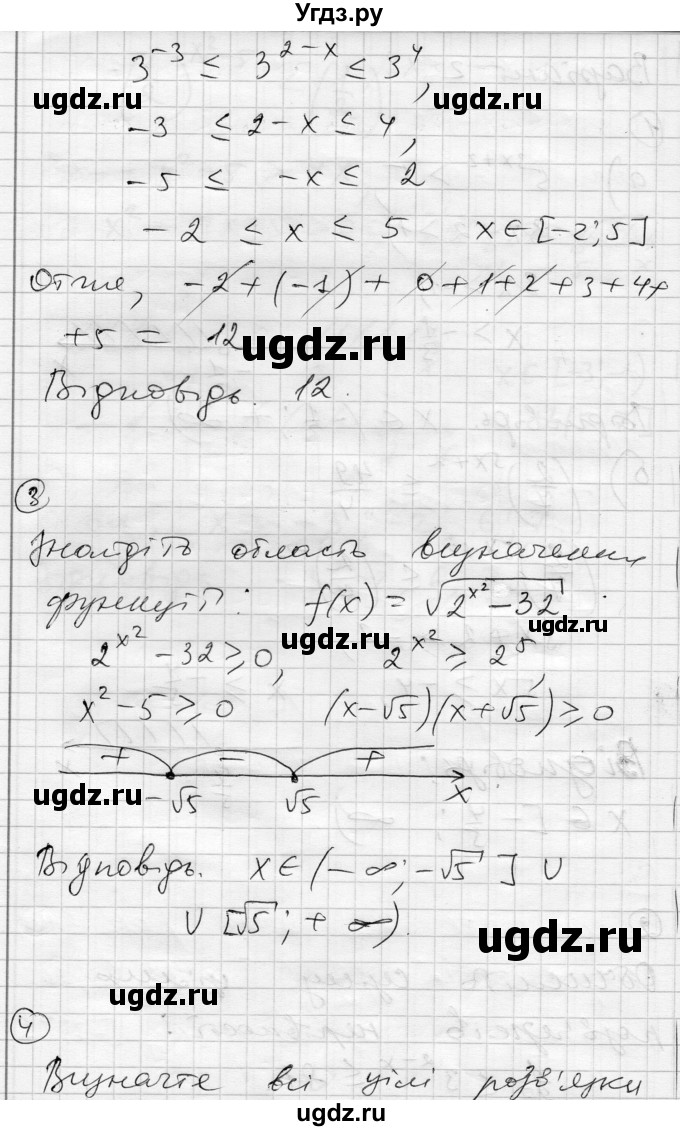 Угдз.ру
3^{-3} ≤ 3^{2-x} ≤ 3^4,
ugdz.ru ugdz.ru
-3 ≤ 2-x ≤ 4,
-5 ≤ -x ≤ 2
-2 ≤ x ≤ 5 x∈[-2;5].
Отже, -2+(-1)+0+1+2+3+4+
+5 = 12
ugdz.ru
Відповідь. 12.
3
Знайдіть область визначення
функції: f(x) = √(2^{x^2}-32).
ugdz.ru
2^{x^2}-32≥0, 2^{x^2} ≥ 2^5,
x^2-5≥0 (x-√5)(x+√5)≥0
+ - +
ugdz.ru -√5 √5 x
Відповідь. x∈(-∞;-√5] ∪
∪ [√5;+∞).
ugdz.ru
ugdz.ru
4
Визначте всі цілі розв'язки
ugdz.ru